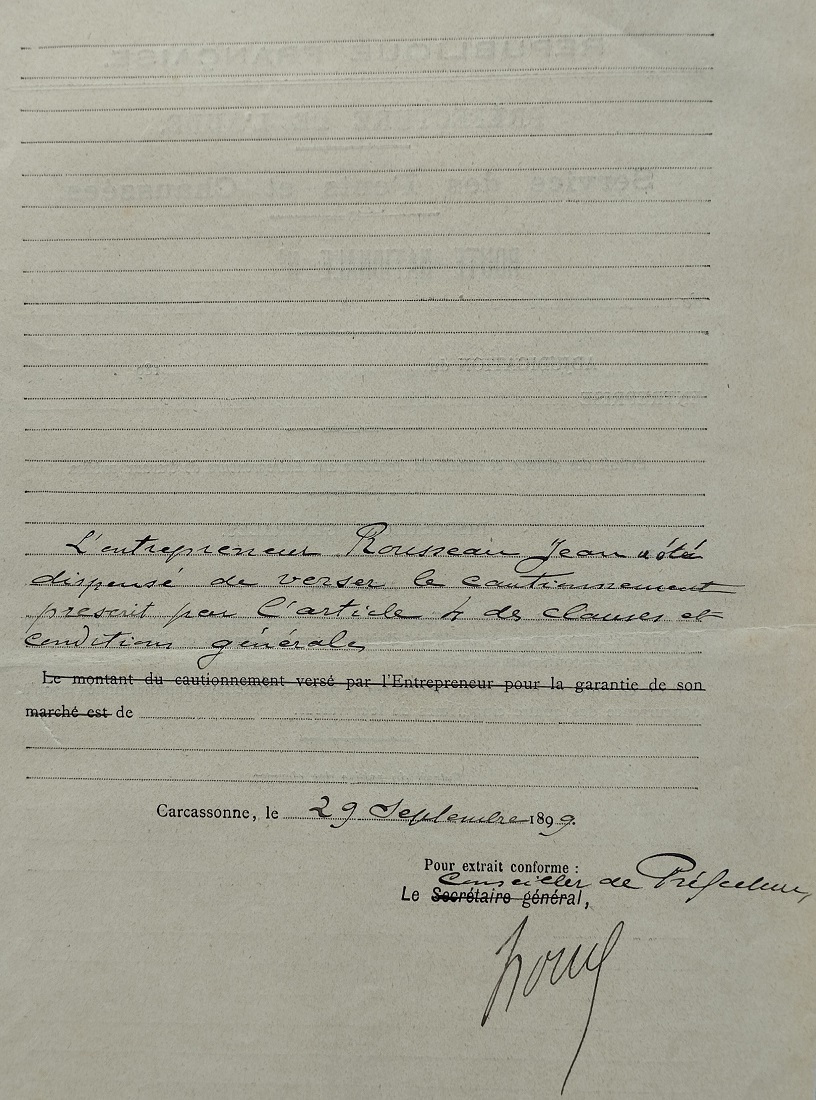 L'entrepreneur Rousseau Jean a été
dispensé de verser le cautionnement
prescrit par l'article 4 des clauses et
conditions générales
Le montant du cautionnement versé par l'Entrepreneur pour la garantie de son
marché est de
Carcassonne, le 29 Septembre 1899.
Pour extrait conforme :
Conseiller de Préfecture,
Le Secrétaire général,